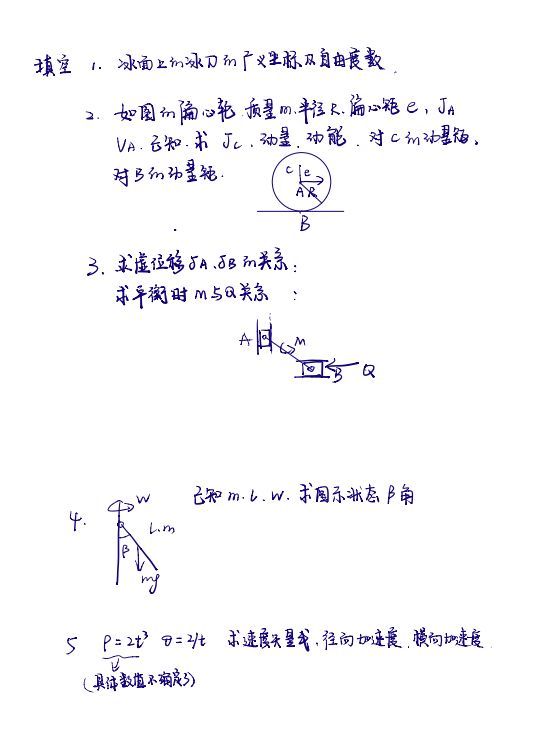 填空 1. 冰面上的冰刀的广义坐标及自由度数.
2. 如图的偏心轮. 质量m. 半径R. 偏心距e, JA
VA. 已知. 求 Jc. 动量. 动能. 对C的动量矩.
对B的动量矩.
C e
A R
B
3. 求虚位移δA、δB的关系;
求平衡时M与Q关系 :
A M
B Q
已知m.l.W. 求图示状态β角
4. W
L.m
β
mg
5 ρ=2t³ θ=2/t 求速度矢量式, 径向加速度, 横向加速度.
(具体数值不确定了)